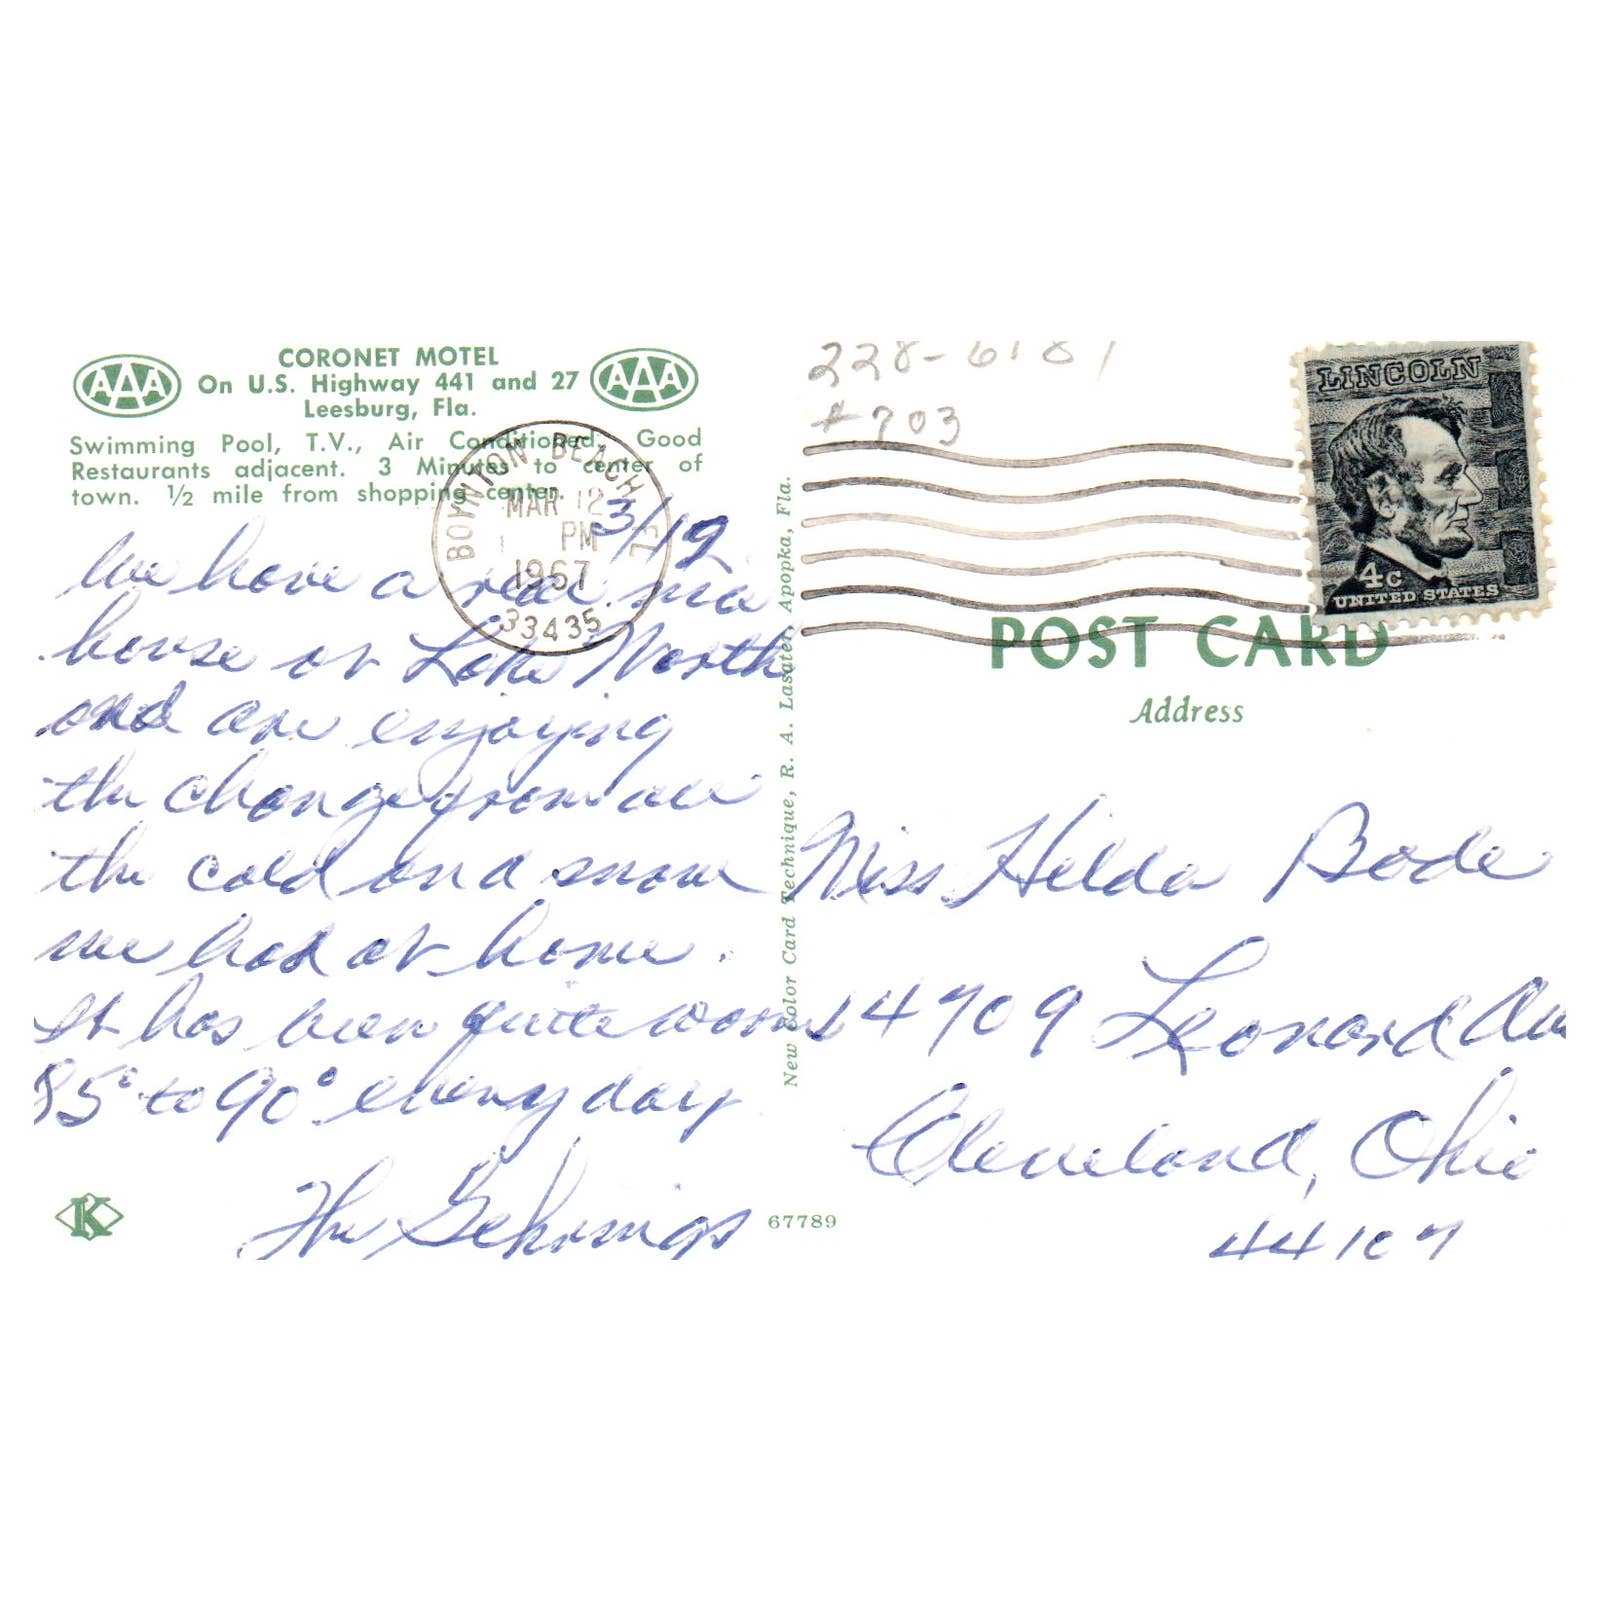 CORONET MOTEL
AAA On U.S. Highway 441 and 27 AAA
Leesburg, Fla.
Swimming Pool, T.V., Air Conditioned, Good
Restaurants adjacent. 3 Minutes to center of
town. ½ mile from shopping center.
BOYNTON BEACH FL
MAR 12
PM
1967
33435
3/12
We have a real nice
house at Lake Worth
and are enjoying
the change from all
the cold and snow
we had at home.
It has been quite warm
85° to 90° every day
The
K
67789
New Color Card Technique, R. A. Lasater, Apopka, Fla.
228-6181
#703
LINCOLN
4c
UNITED STATES
POST CARD
Address
Miss Helda Bode
14709 Leonard Av
Cleveland, Ohio
44107